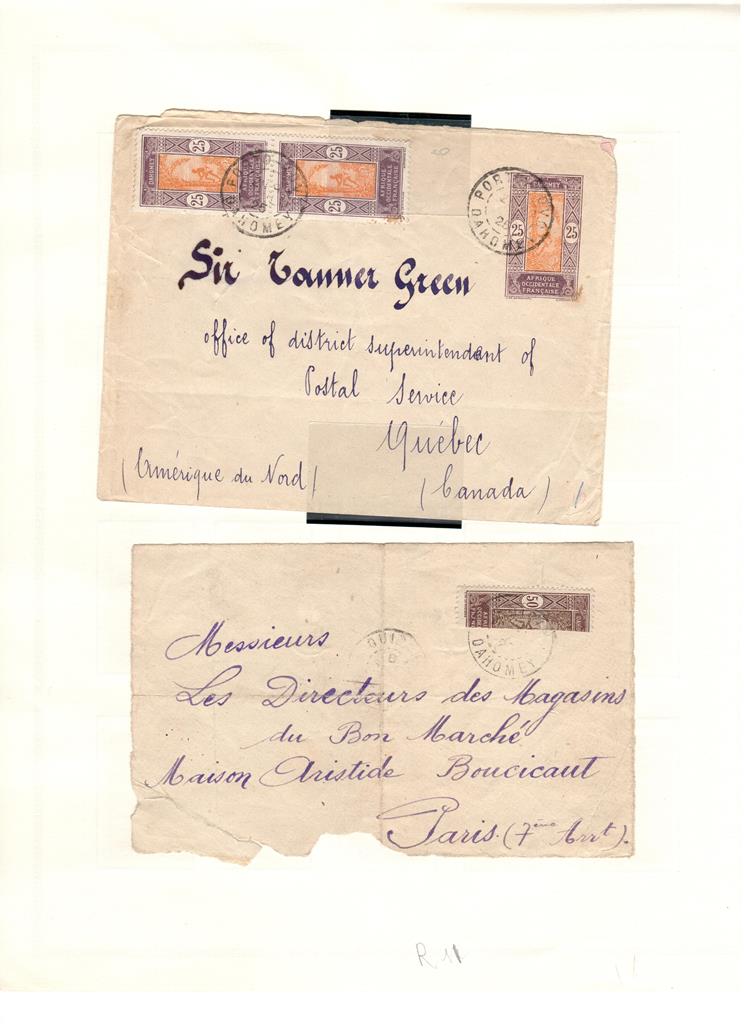 25 25
DAHOMEY
AFRIQUE
OCCIDENTALE
FRANÇAISE
25 25
DAHOMEY
AFRIQUE
OCCIDENTALE
FRANÇAISE
DAHOMEY
DAHOMEY
25 25
AFRIQUE
OCCIDENTALE
FRANÇAISE
PORTO
DAHOMEY
Sir Tanner Green
office of district superintendant of
Postal Service
Québec
(Amérique du Nord)
(Canada)
50
DAHOMEY
OUI
Messieurs
Les Directeurs des Magasins
du Bon Marché
Maison Aristide Boucicaut
Paris. (7ème Arrt).
R 11